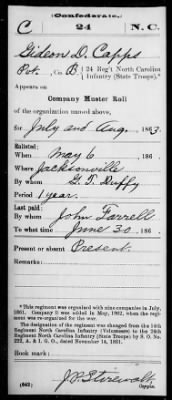 (Confederate.)
C 24 N.C.
Gideon D. Capps
Pvt., Co. B, 24 Reg't North Carolina
Infantry (State Troops).*
Appears on
Company Muster Roll
of the organization named above,
for July and Aug, 1863.
Enlisted:
When May 6, 186 .
Where Jacksonville
By whom G. T. Duffy
Period 1 year.
Last paid:
By whom John Farrell
To what time June 30, 186 .
Present or absent Present.
Remarks:
*This regiment was organized with nine companies in July,
1861. Company I was added in May, 1862, when the regi-
ment was re-organized for the war.
The designation of the regiment was changed from the 14th
Regiment North Carolina Infantry (Volunteers) to the 24th
Regiment North Carolina Infantry (State Troops) by S. O. No.
222, A. & I. G. O., dated November 14, 1861.
Book mark:
(642) J. P. Stirewalt
Copyist.